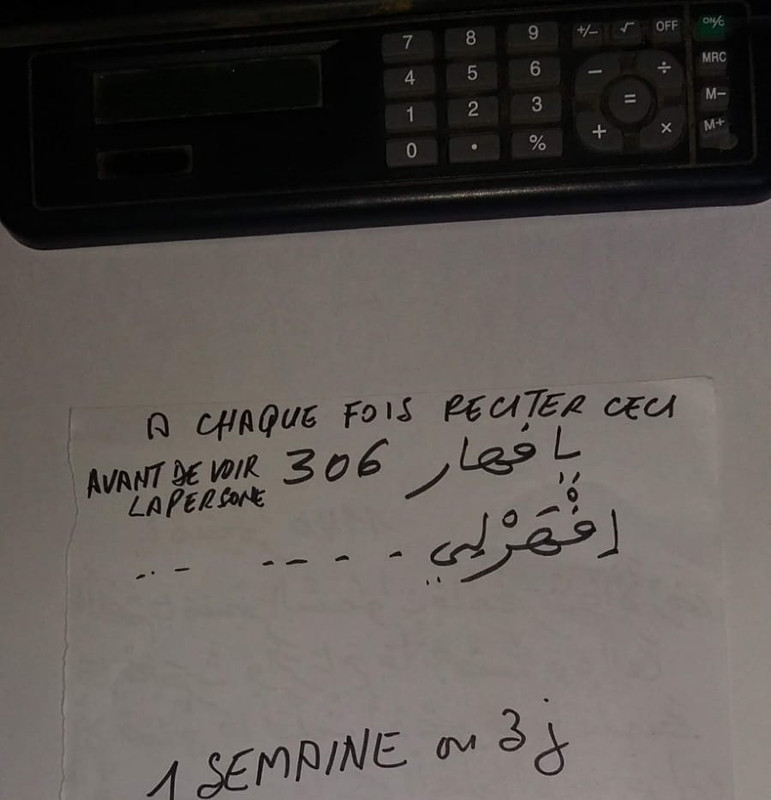 7 8 9 +/− √ OFF ON/C
4 5 6 − ÷ MRC
1 2 3 = M−
0 • % + × M+
A CHAQUE FOIS RECITER CECI
AVANT DE VOIR 306 يا قهار
LA PERSONE
اِقْهَرْ لِي - - - - - ...
1 SEMAINE ou 3 j